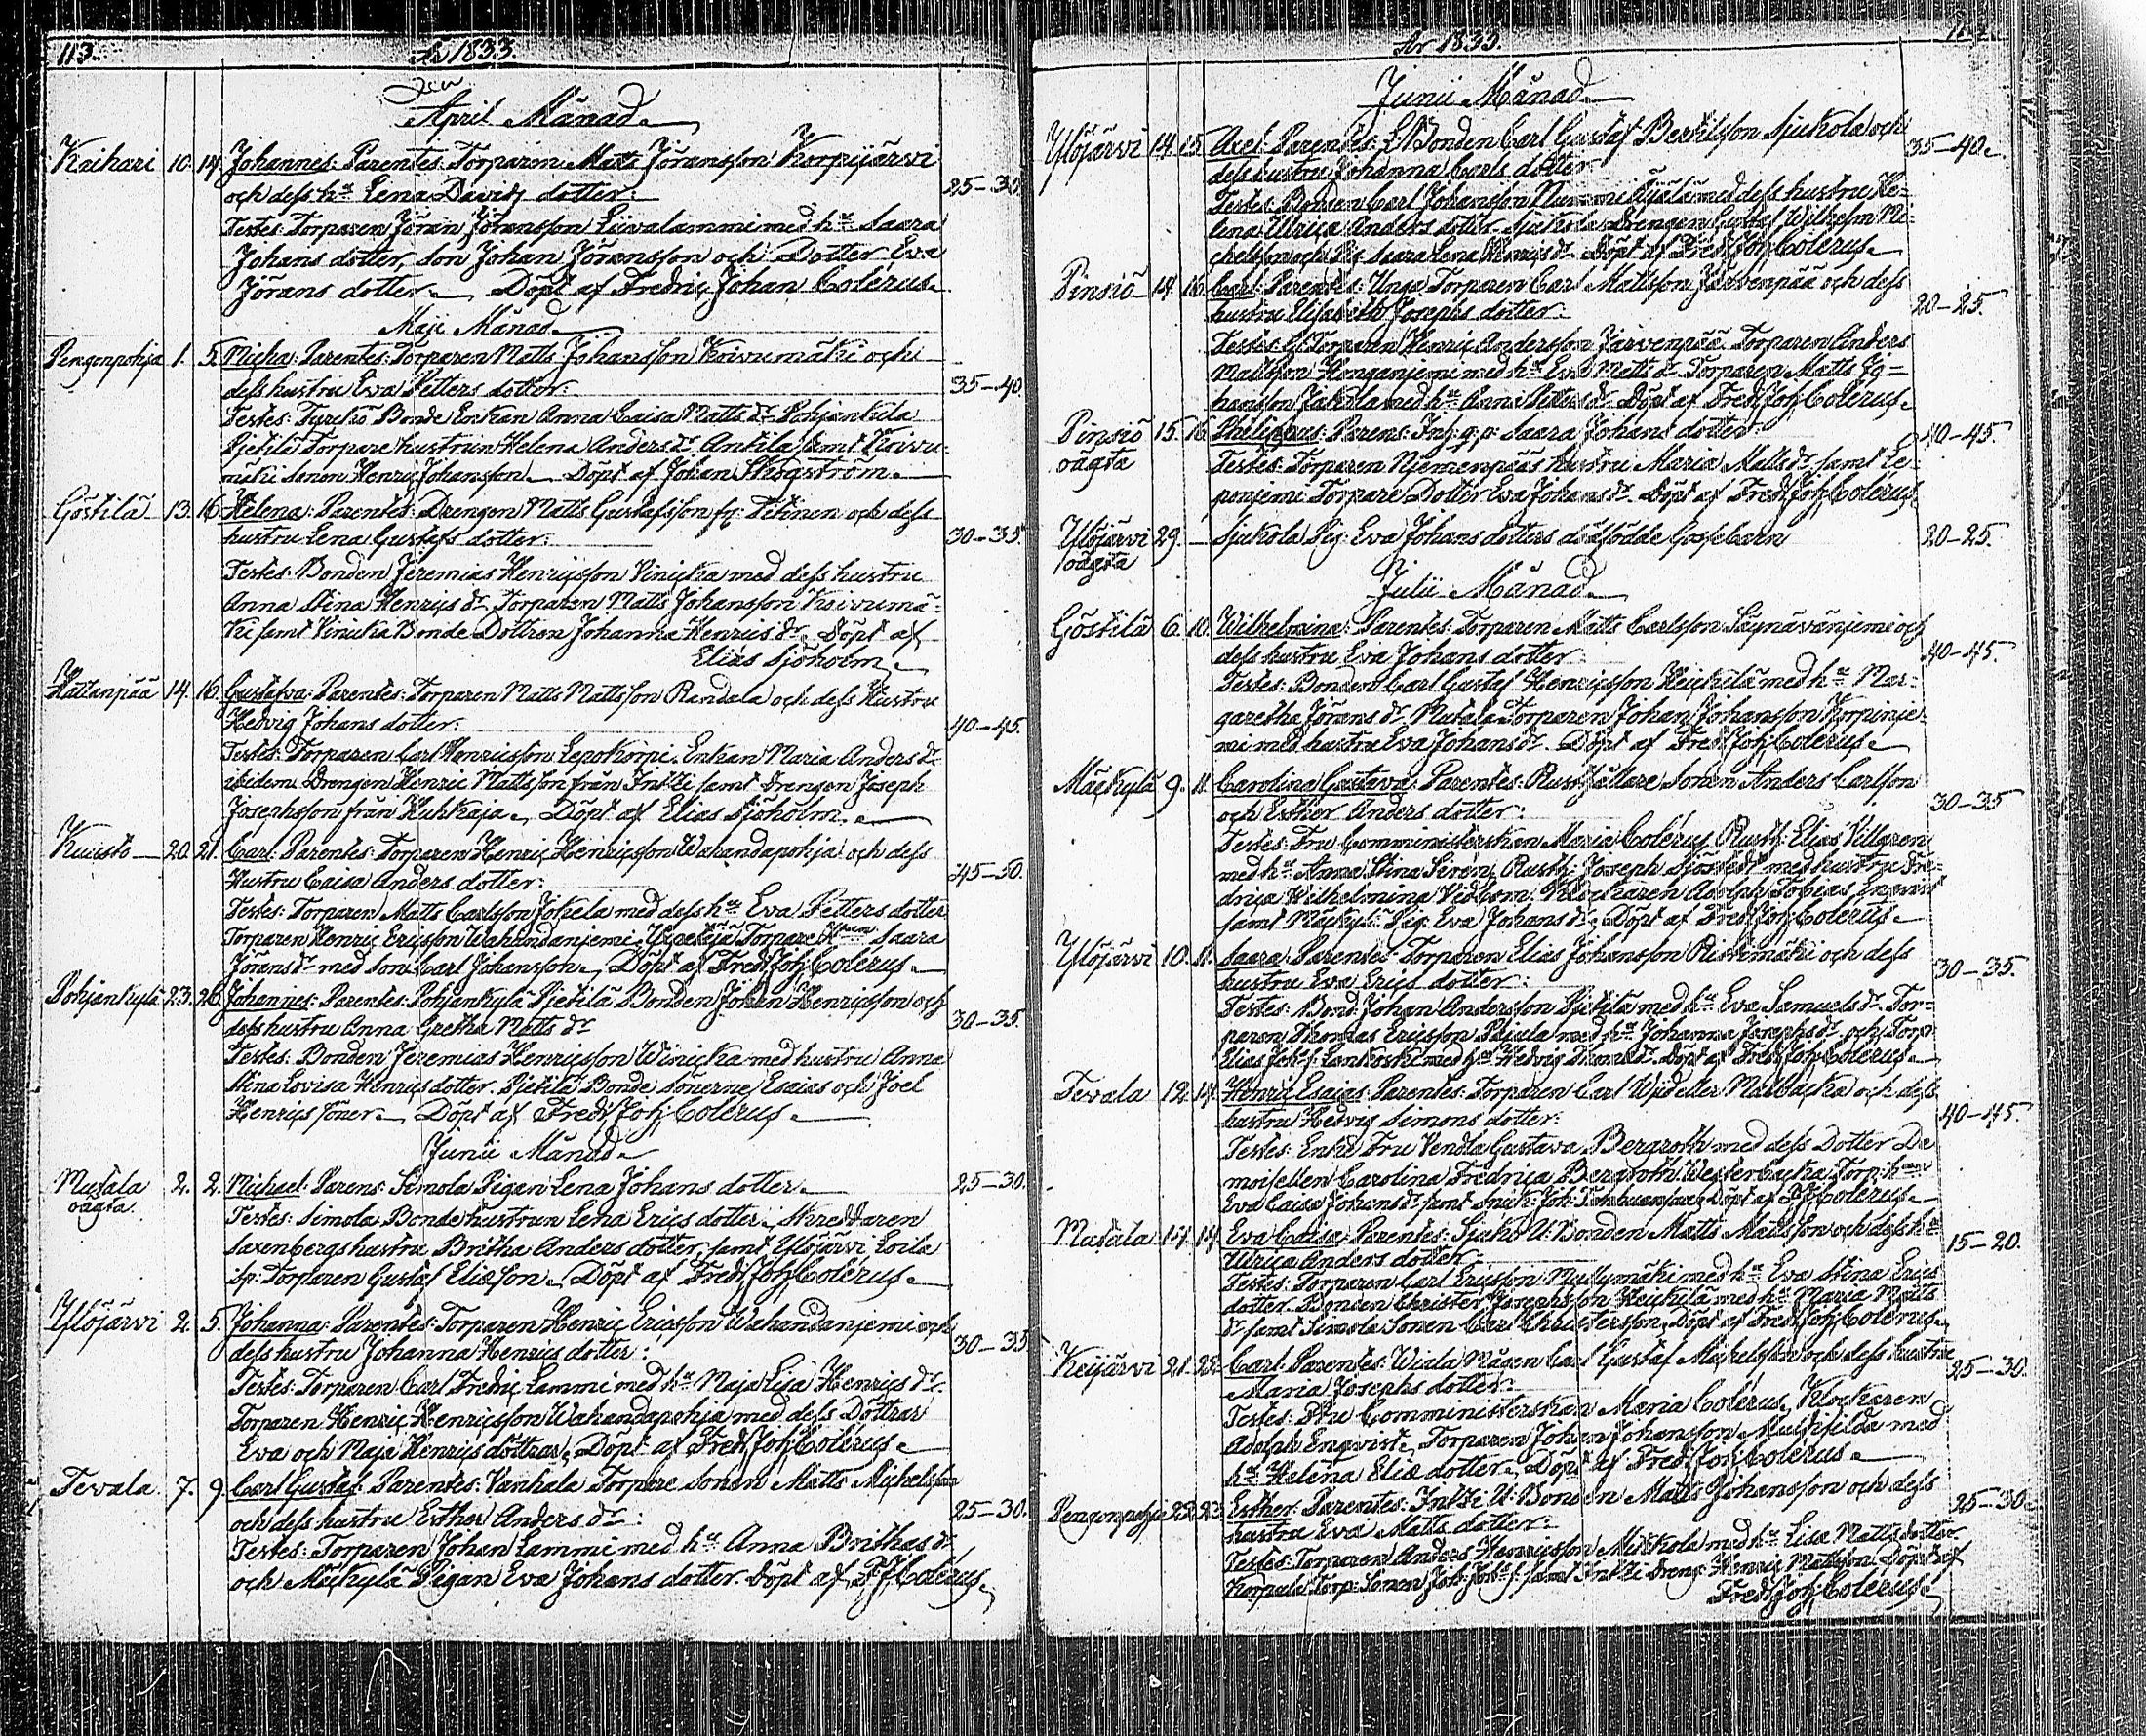 113.
År 1833.
April Månad
Kaihari 10. 14. Johannes: Parentes: Torparen Matts Jöransson Korpijärvi
och dess hu Lena Davids dotter: 25–30.
Testes: Torparen Jöran Jöransson Liivalammi med hu Saara
Johans dotter, son Johan Jöransson och Dotter Eva
Jörans dotter. Döpt af Fredric Johan Colérus.
Maji Månad
Pengonpohja 1. 5. Micha: Parentes: Torparen Matts Johansson Koivumäki och
dess hustru Eva Petters dotter: 35–40.
Testes: Tyrckö Bonde Enkan Anna Caisa Matts dr Pohjankÿla
Pietilä Torpare hustrun Helena Anders dr Antila samt Koivu-
mäki sonen Henric Johansson. Döpt af Johan Skogström.
Göstilä 13. 16. Helena: Parentes: Drengen Matts Gustafsson fr. Titinen och dess
hustru Lena Gustafs dotter: 30–35.
Testes: Bonden Jeremias Henricsson Vinicka med dess hustru
Anna Stina Henrics dr Torparen Matts Johansson Koivumä-
ki samt Vinicka Bonde Dottren Johanna Henrics dr Döpt af
Elias Sjöholm
Hatanpää 14. 16. Gustafva: Parentes: Torparen Matts Mattsson Randala och dess Hustru
Hedvig Johans dotter: 40–45.
Testes: Torparen Carl Henricsson Lepokorpi. Enkan Maria Anders dr
ibidem Drengen Henric Mattsson från Inkki samt Drengen Joseph
Josephsson från Huhkaja. Döpt af Elias Sjöholm.
Kuusto 20. 21. Carl: Parentes: Torparen Henric Henricsson Wahandapohja och dess
Hustru Caisa Anders dotter: 45–50.
Testes: Torparen Matts Carlsson Jokela med dess hu Eva Petters dotter
Torparen Henric Ericsson Wahandanjemi, Torpare Hrun Saara
Jörans dr med son Carl Johansson. Döpt af Fred: Joh: Colérus.
Pohjankylä 23. 26. Johannes: Parentes: Pohjankylä Pietilä Bonden Johan Henricsson och
dess hustru Anna Gretha Matts dr 30–35.
Testes: Bonden Jeremias Henricsson Winicka med hustru Anna
Stina Lovisa Henrics dotter. Pietilä Bonde sönerne Esaias och Joel
Henrics söner. Döpt af Fred: Joh: Colérus.
Junii Månad
Mutala 2. 2. Michael: Parens: Simola Pigan Lena Johans dotter 25–30.
oägta.
Testes: Simola Bonde hustrun Lena Erics dotter, Skreddaren
Saxenbergs hustru Britha Anders dotter, samt Ylöjärvi Loila
Torparen Gustaf Eliæson. Döpt af Fred: Joh: Colérus.
Ylöjärvi 2. 5. Johanna: Parentes: Torparen Henric Ericsson Wahandanjemi och
dess hustru Johanna Henrics dotter: 30–35.
Testes: Torparen Carl Fredric Lammi med hu Maja Lisa Henrics dr.
Torparen Henric Henricsson Wahandapohja med dess Döttrar
Eva och Maja Henrics döttrar. Döpt af Fred: Joh: Colérus.
Tevala 7. 9. Carl Gustaf: Parentes: Vanhala Torpare Sonen Matts Michelsson
och dess hustru Esther Anders dr: 25–30.
Testes: Torparen Johan Lammi med hu Anna Brithas dr
och Mäckylä Pigan Eva Johans dotter. Döpt af F J Colérus.
År 1833.
Junii Månad
Ylöjärvi 14. 15. Axel: Parentes: Bonden Carl Gustaf Bertilsson Sjukola och
dess hustru Johanna Carls dotter 35–40.
Testes: Bonden Carl Johansson Nummi med dess hustru He-
lena Ulrica Anders dotter Sjukola Drengen Gustaf Wilhelm Mi-
chelsson och Pig. Saara Lena Henrics dr. Döpt af Fred: Joh: Colérus.
Pinsiö 14. 16. Carl: Parentes: Unga Torparen Carl Mattsson Järvenpää och dess
hustru Elisabeth Josephs dotter: 20–25.
Testes: G. Torparen Henric Andersson Järvenpää. Torparen Anders
Mattsson Honganjemi med hu Eva Matts dr Torparen Matts Jo-
hansson Jakola med hu Anna Petters dr Döpt af Fred: Joh: Colérus.
Pinsiö 15. 16. Philippus: Parens: Saara Johans dotter: 40–45.
oägta
Testes: Torparen Njemenpääs hustru Maria Matts dr samt Le-
ponjemi Torpare Dotter Eva Johans dr. Döpt af Fred: Joh: Colérus.
Ylöjärvi 29. – Sjukola Pig: Eva Johans dotters dödfödde Gossebarn 20–25.
oägta
Julii Månad
Göstilä 6. 10. Wilhelmina: Parentes: Torparen Matts Carlsson Säynävänjemi och
dess hustru Eva Johans dotter 40–45.
Testes: Bonden Carl Gustaf Henricsson Heickilä med hu Mar-
garetha Jörans dr. Mutala Torparen Johan Johansson Korpinje-
mi med hustru Eva Johans dr. Döpt af Fred: Joh: Colérus.
Mäckylä 9. 11. Carolina Gustava: Parentes: Rusthållare Sonen Anders Carlsson
och Esther Anders dotter: 30–35
Testes: Fru Comministerskan Maria Colérus, Rusth: Elias Villgren
med hu Anna Stina Sirén, Rusth: Joseph Sjöstedt med hustru Fre-
drica Wilhelmina Vidbom. Klockaren Adolph Tobias Enqvist
samt Mäckylä Pig: Eva Johans dr. Döpt af Fred: Joh: Colérus.
Ylöjärvi 10. 11. Saara: Parentes: Torparen Elias Johansson Ristimäki och dess
hustru Eva Erics dotter: 30–35.
Testes: Bond: Johan Andersson Pietilä med hu Eva Samuels dr. Tor-
paren Thomas Ericsson Rajala med hu Johanna Josephs dr och Torp:
Elias Joh:s: Lankoski med hu Hedvig Thomæ dr. Döpt af Fred: Joh: Colérus.
Tevala 12. 14. Henric Esaias: Parentes: Torparen Carl och dess
hustru Hedvig Simons dotter: 40–45.
Testes: Enke Fru Vendla Gustava Bergroth med dess Dotter De
moisellen Carolina Fredrica Bergroth, Torp: hun
Eva Caisa Johans dr samt Döpt af F J Colérus.
Mutala 14. 14. Eva Caisa: Parentes: Sjuko U: Bonden Matts Mattsson och dess hu
Ulrica Anders dotter 15–20.
Testes: Torparen Carl Ericsson Myllymäki med hu Eva Stina Erics
dotter. Bonden Christer Josephsson Heickilä med hu Maria Matts
dr samt Simola Sonen Carl Christersson. Döpt af Fred: Joh: Colérus.
Keijärvi 21. 22. Carl: Parentes: Wiala Mågen Carl Gustaf Michelsson och dess hustru
Maria Josephs dotter: 25–30.
Testes: Fru Comministerskan Maria Colérus, Klockaren
Adolph Enqvist, Torparen Johan Johansson Multisilda med
hu Helena Eliæ dotter. Döpt af Fred: Joh: Colérus.
Pengonpohja 22. 23. Esther: Parentes: Inkki U: Bonden Matts Johansson och dess
hustru Eva Matts dotter: 25–30.
Testes: Torparen Anders Henricsson Mickola med hu Lisa Matts dotter.
Korpula Torp: Sonen Joh: Joh:s: samt Inkki Dreng Henric Mattsson Döpt af
Fred: Joh: Colérus.